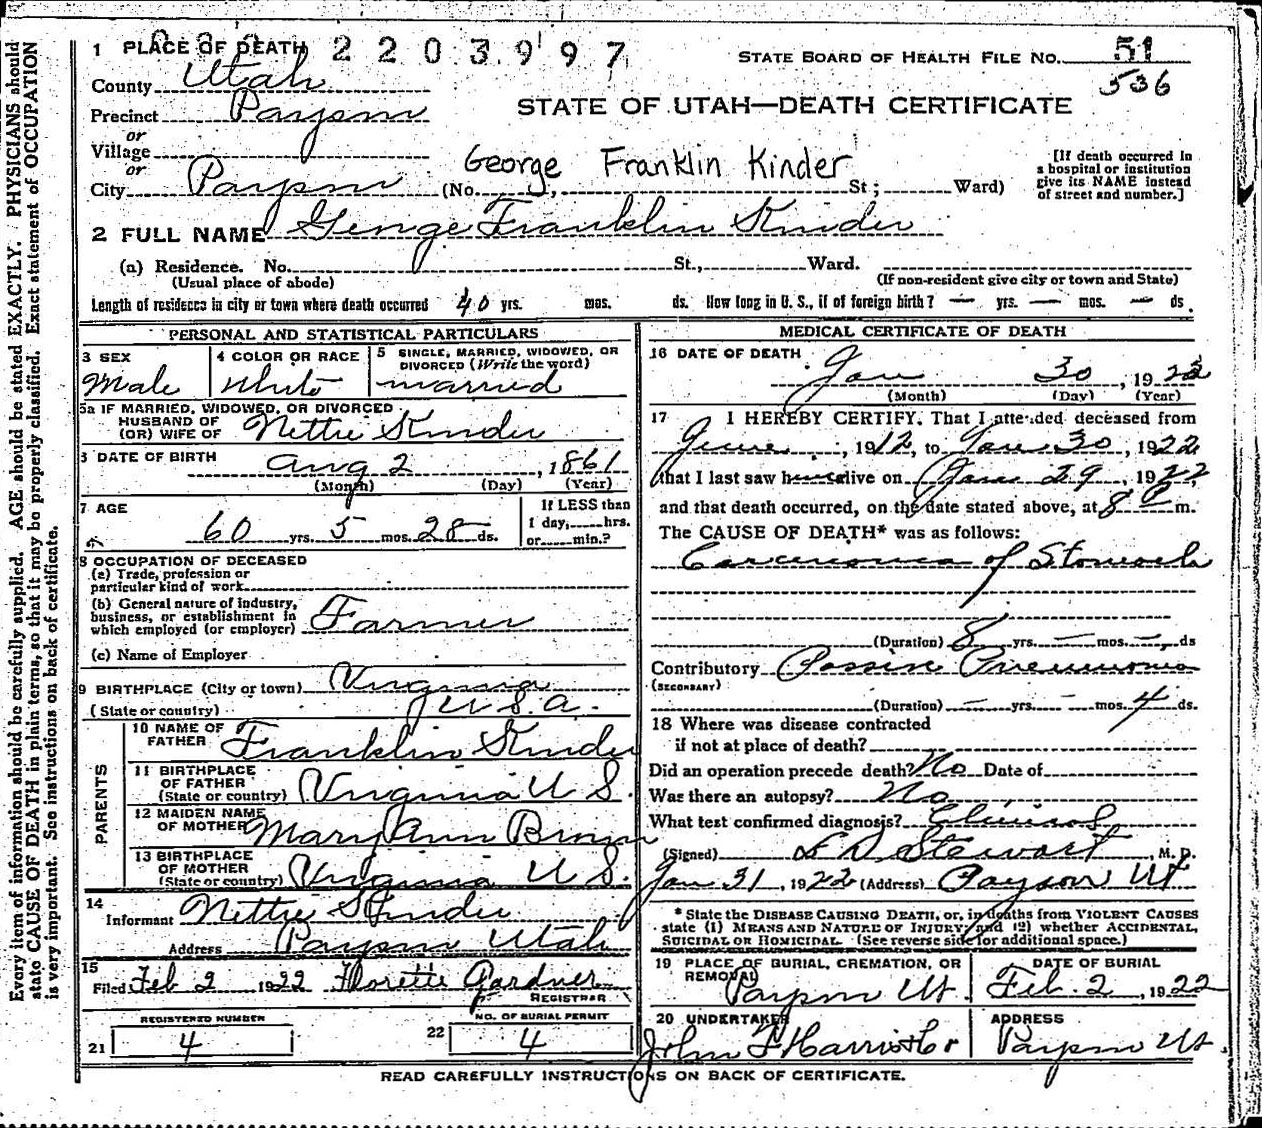 2203997
1 PLACE OF DEATH
STATE BOARD OF HEALTH FILE NO. 51
536
County Utah
Precinct Payson
STATE OF UTAH—DEATH CERTIFICATE
or
Village
or
George Franklin Kinder
[If death occurred in
a hospital or institution
give its NAME instead
of street and number.]
City Payson (No. St; Ward)
2 FULL NAME George Franklin Kinder
(a) Residence. No. St., Ward.
(Usual place of abode) (If non-resident give city or town and State)
Length of residecca in city er town where death occurred 40 yrs. mos. ds. How long in U. S., if of foreign birth? — yrs. — mos. — ds.
PERSONAL AND STATISTICAL PARTICULARS
3 SEX Male
4 COLOR OR RACE White
5 SINGLE, MARRIED, WIDOWED, OR
DIVORCED (Write the word)
married
5a IF MARRIED, WIDOWED, OR DIVORCED
HUSBAND OF
(OR) WIFE OF Nettie Kinder
6 DATE OF BIRTH Aug 2, 1861
(Month) (Day) (Year)
7 AGE
60 yrs. 5 mos. 28 ds.
If LESS than
1 day, hrs.
or min.?
8 OCCUPATION OF DECEASED
(a) Trade, profession or
particular kind of work
(b) General nature of industry,
business, or establishment in
which employed (or employer) Farmer
(c) Name of Employer
9 BIRTHPLACE (City or town) Virginia
(State or country) U.S.a.
PARENTS
10 NAME OF
FATHER Franklin Kinder
11 BIRTHPLACE
OF FATHER
(State or country) Virginia U S.
12 MAIDEN NAME
OF MOTHER Mary Ann Brown
13 BIRTHPLACE
OF MOTHER
(State or country) Virginia U S.
14
Informant Nettie Kinder
Address Payson Utah
15
Filed Feb 2 1922 Florette Gardner
REGISTRAR
REGISTERED NUMBER
21 4
NO. OF BURIAL PERMIT
22 4
MEDICAL CERTIFICATE OF DEATH
16 DATE OF DEATH
Jan 30, 1922
(Month) (Day) (Year)
17 I HEREBY CERTIFY, That I attended deceased from
June, 1912, to Jan 30, 1922
that I last saw him alive on Jan 29, 1922
and that death occurred, on the date stated above, at 8 P m.
The CAUSE OF DEATH* was as follows:
Carcinoma of Stomach
(Duration) 8 yrs. — mos. — ds
Contributory Passive Pneumonia
(SECONDARY)
(Duration) — yrs. — mos. 4 ds.
18 Where was disease contracted
if not at place of death?
Did an operation precede death? No Date of
Was there an autopsy? No
What test confirmed diagnosis? Clinical
(Signed) L D Stewart, M. D.
Jan 31, 1922 (Address) Payson Ut
* State the DISEASE CAUSING DEATH, or, in deaths from VIOLENT CAUSES
state (1) MEANS AND NATURE OF INJURY, and (2) whether ACCIDENTAL,
SUICIDAL OR HOMICIDAL. (See reverse side for additional space.)
19 PLACE OF BURIAL, CREMATION, OR
REMOVAL
Payson Ut
DATE OF BURIAL
Feb. 2, 1922
20 UNDERTAKER
John F Harris
ADDRESS
Payson Ut.
READ CAREFULLY INSTRUCTIONS ON BACK OF CERTIFICATE.
Every item of information should be carefully supplied. AGE should be stated EXACTLY. PHYSICIANS should
state CAUSE OF DEATH in plain terms, so that it may be properly classified. Exact statement of OCCUPATION
is very important. See instructions on back of certificate.